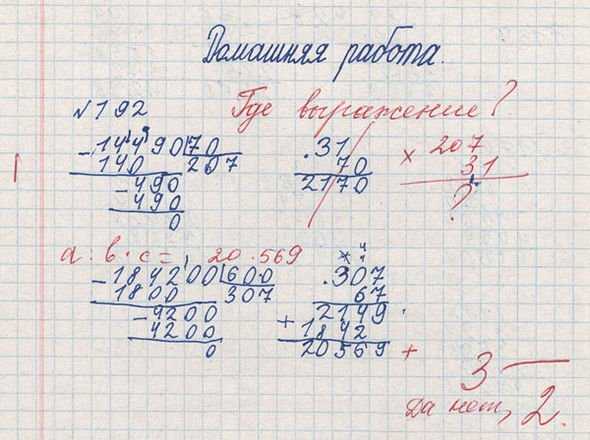 Домашняя работа.
№192
Где выражение?
14490 | 70
140
207
490
490
0
.31
70
2170
× 207
31
?
a : b · c = 20.569
184200 | 600
1800
307
4200
4200
0
.307
67
2149
+ 1842
20569 +
3 —
Да нет, 2.